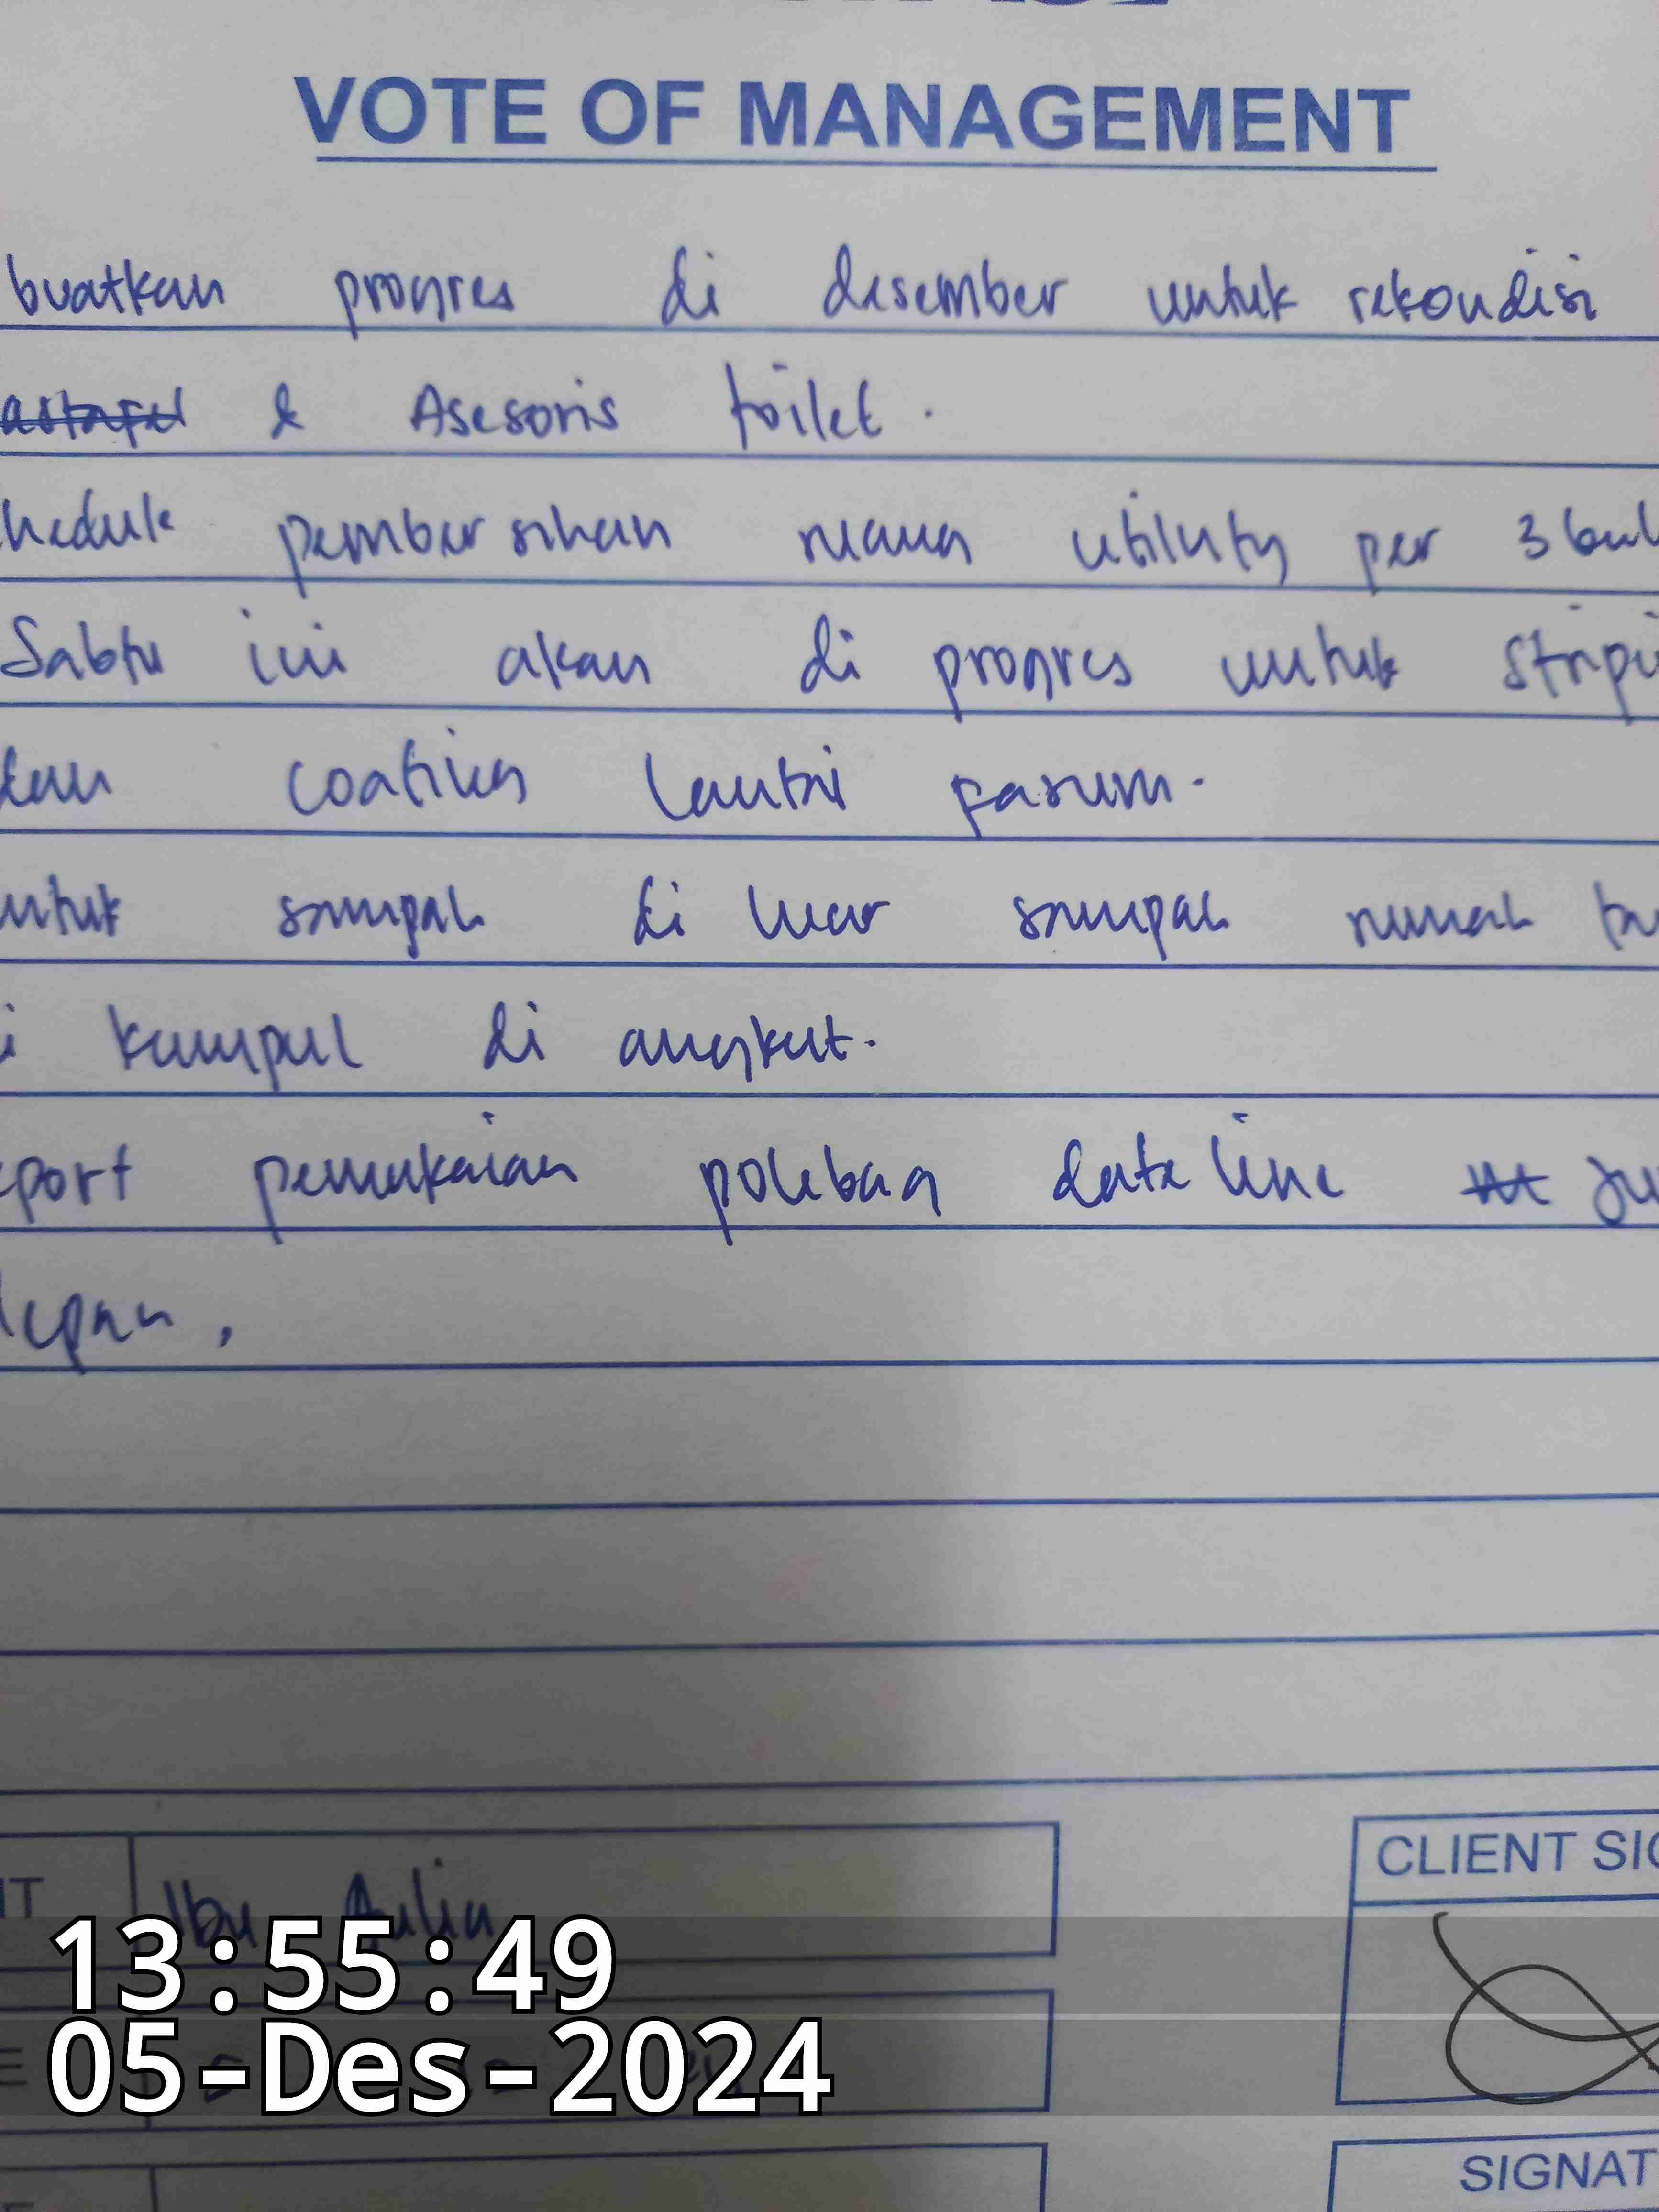 VOTE OF MANAGEMENT
buatkan progres di desember untuk rekondisi
& Asesoris toilet.
hedule pembersihan ruang utility per 3 bul
Sabtu ini akan di progres untuk stripi
dan coating lantai pasum.
untuk sampah di luar sampah rumah ta
i kumpul di angkut.
port pemakaian polebag dateline ju
depan.
CLIENT SIG
Ibu Aulia
13:55:49
05-Des-2024
SIGNAT